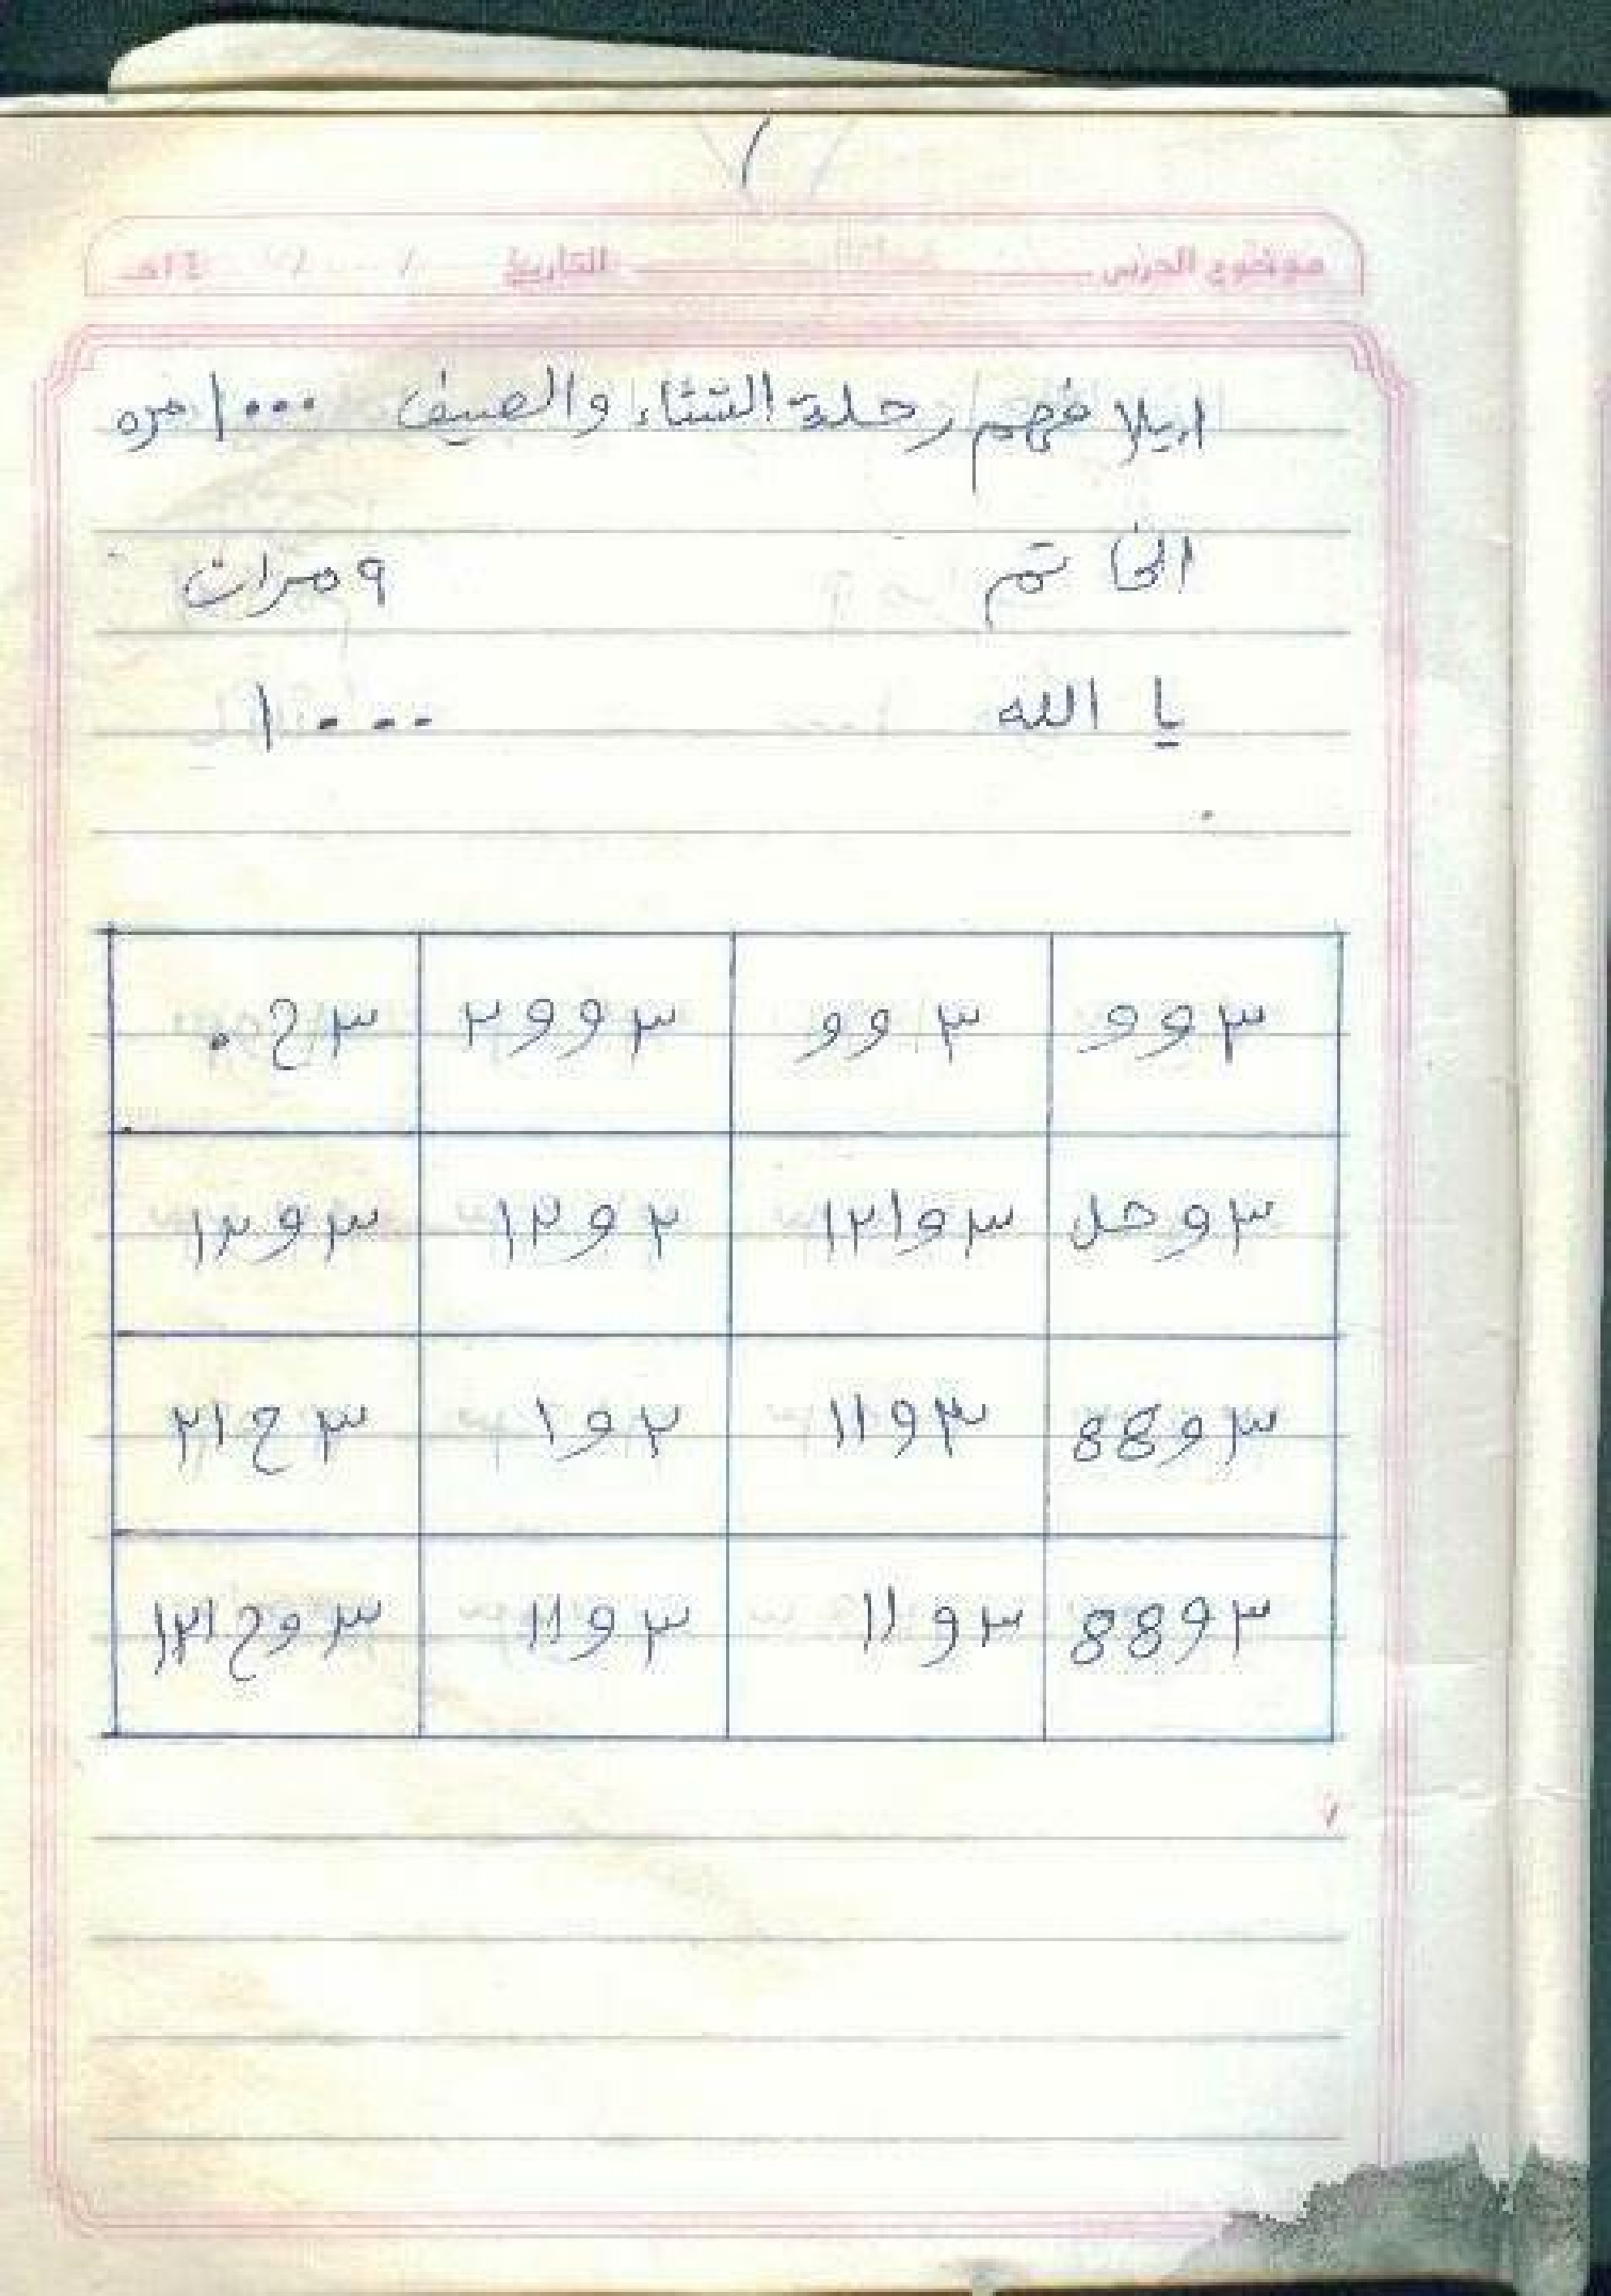 ١
موضوع الدرس التاريخ ١٤هـ
ايلا فهم رحلة الشتاء والصيف ١٠٠٠ مره
الخا تم ٩ مرات
يا الله ١٠٠٠
٣وو ٣وو ٣وو٢ ٣ح٠
٣وحل ٣و١٢١ ٢و١٣ ٣و١٢
٣و88 ٣و١١ ٢و١ ٣ح٢١
٣و88 ٣و١١ ٣و١١ ٣وح١٣١